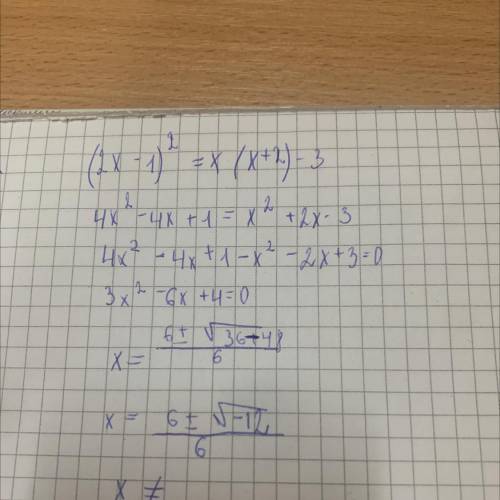 (2x - 1)² = x (x+2) - 3
4x² - 4x + 1 = x² + 2x - 3
4x² - 4x + 1 - x² - 2x + 3 = 0
3x² - 6x + 4 = 0
x = (6 ± √36-48)/6
x = (6 ± √-12)/6
x ≠